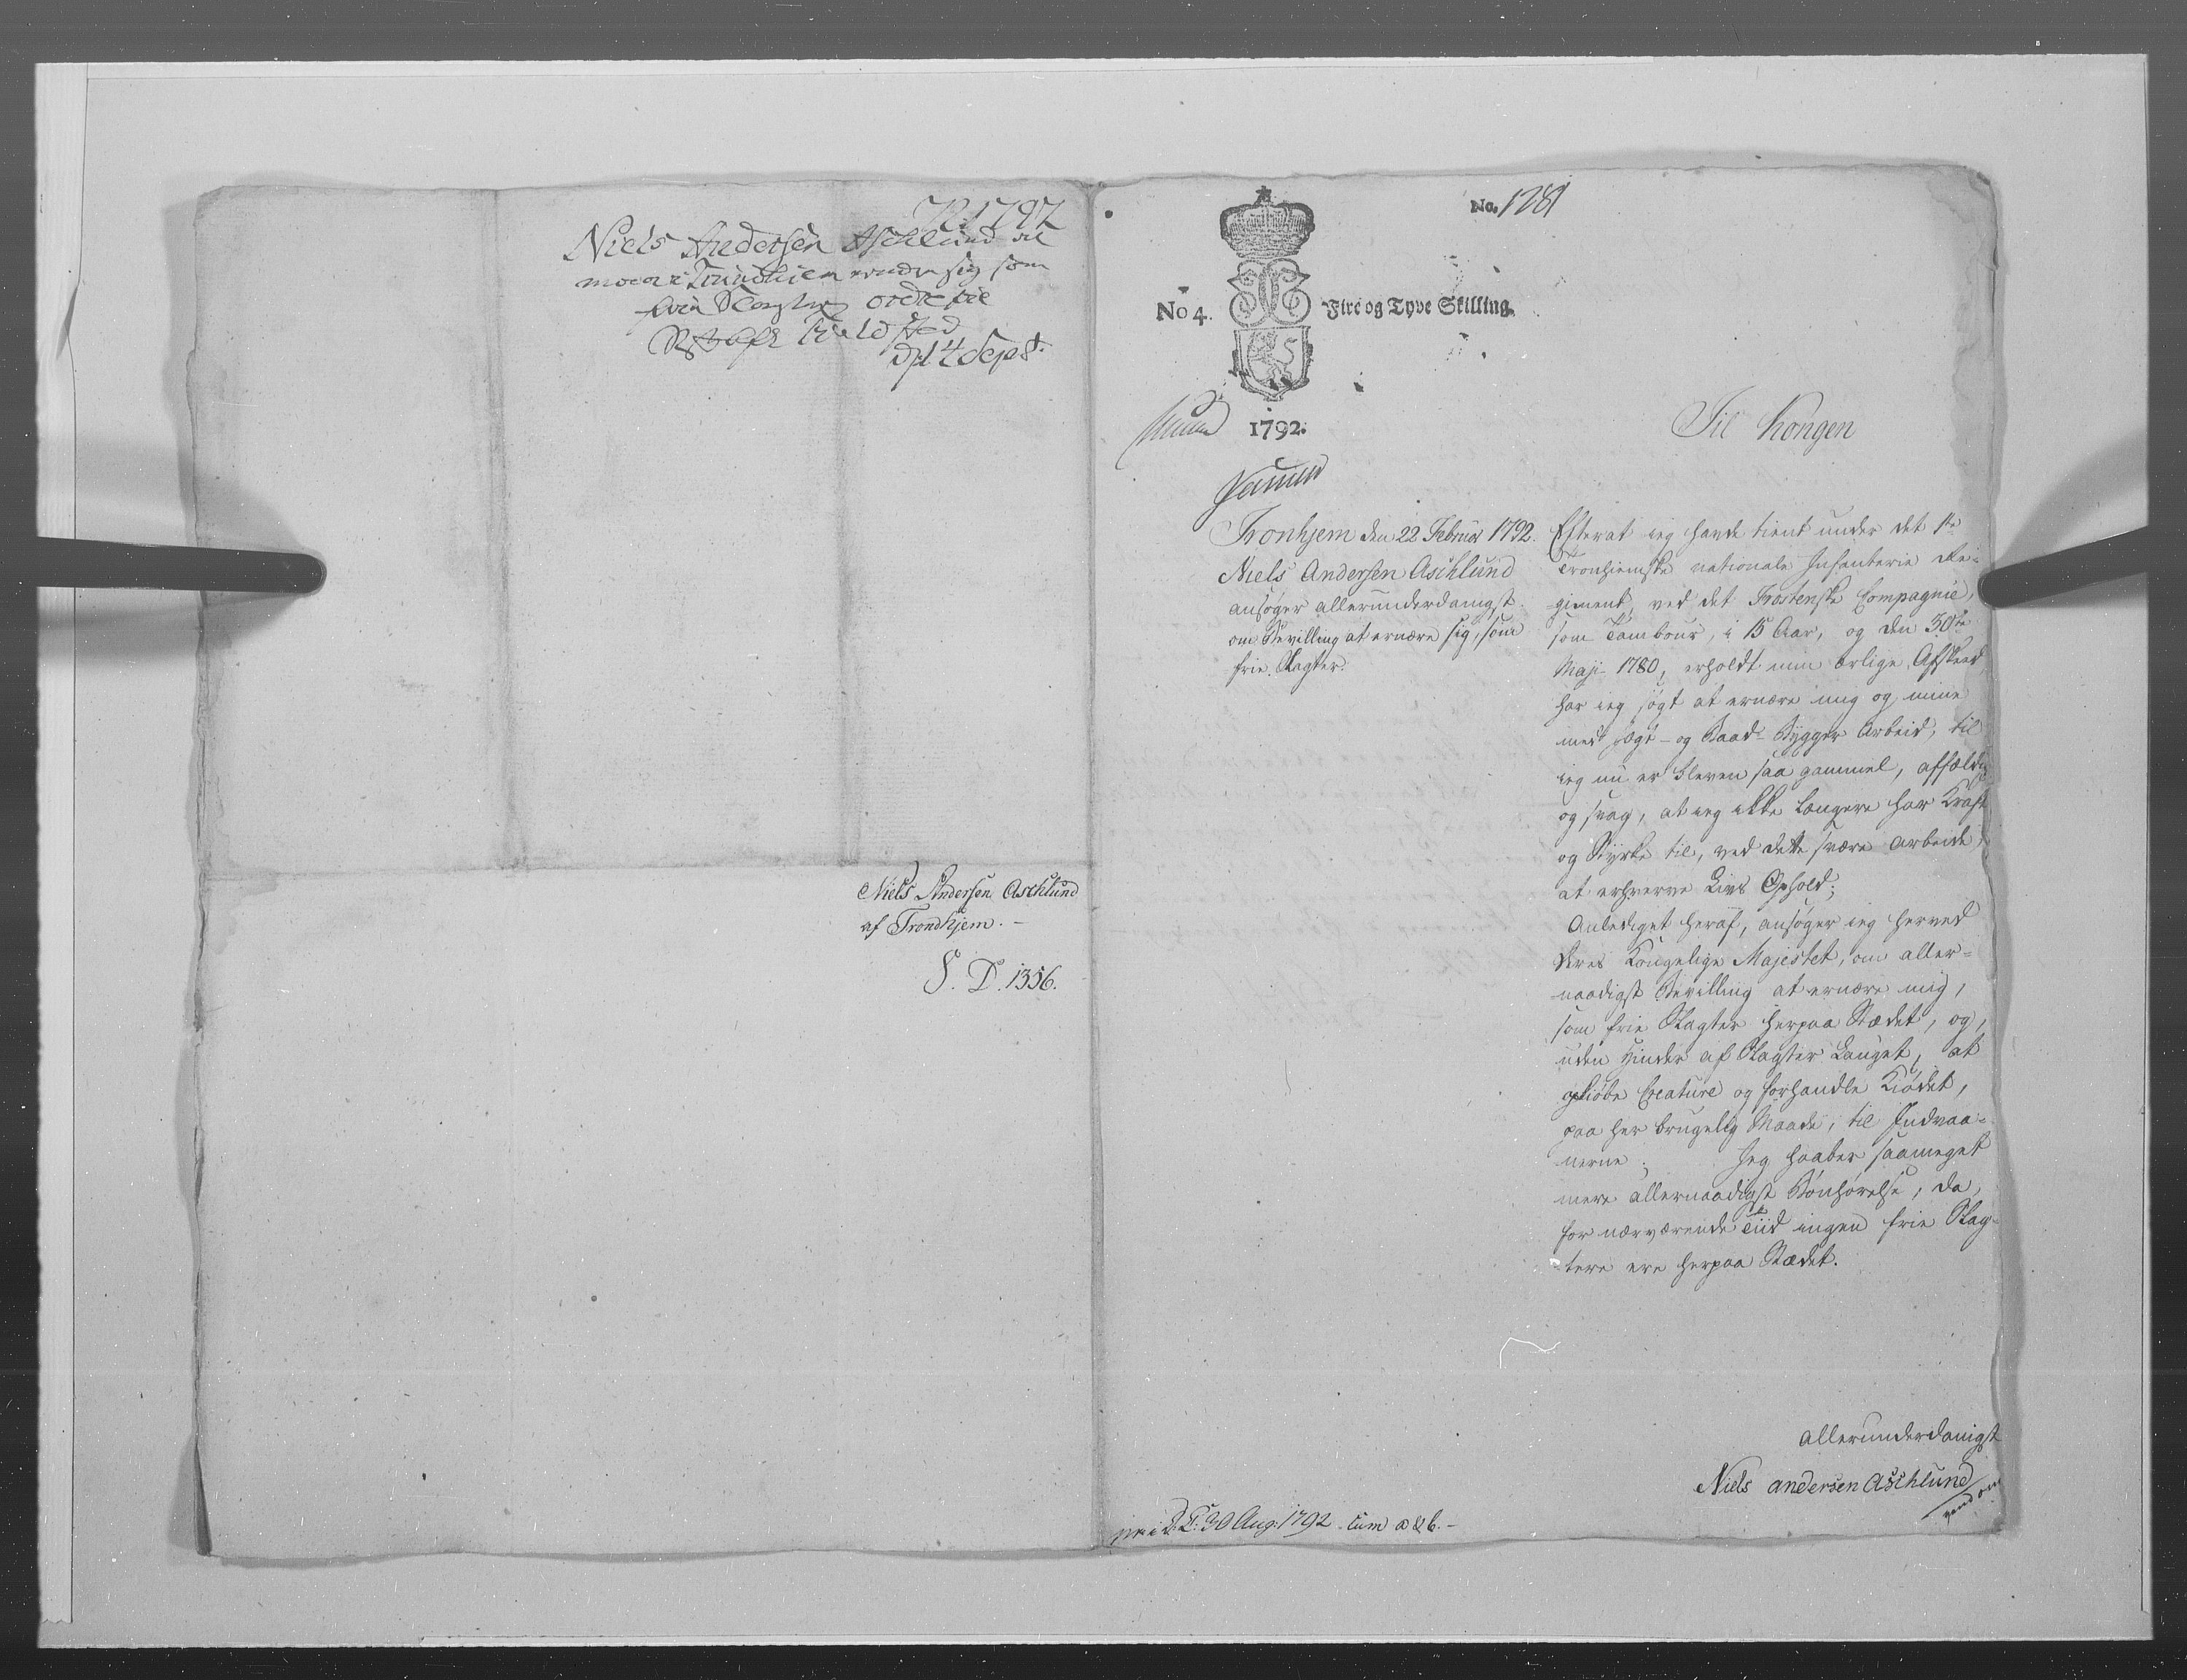 Niels Andersen Aschlund
sig som
ordre til
d 14 Sept.
Niels Andersen Aschlund
af Trondhjem. -
S. D. 1356.
No. 1281
No 4. Fire og Tyve Skilling.
1792.
Til Kongen
Tronhjem den 22 Februar 1792.
Niels Andersen Aschlund
ansøger allerunderdanigst
om Bevilling at ernære sig, som
frie Slagter.
Efterat ieg havde tient under det 1te
Tronhiemske nationale Infanterie Re-
giment, ved det Frostenske Compagnie,
som Tambour, i 15 Aar, og den 30te
Maji 1780, erholdt min ærlige Afskeed
har ieg søgt at ernære mig og mine
med Jægt- og Baad-Bygger Arbeid, til
ieg nu er bleven saa gammel, affældig
og svag, at ieg ikke længere har Kraft
og Styrke til, ved dette svære Arbeide
at erhverve Livs Ophold;
Anlediget heraf, ansøger ieg herved
Deres Kongelige Majestet, om aller-
naadigst Bevilling at ernære mig,
som frie Slagter herpaa Stædet, og,
uden Hinder af Slagter Lauget, at
opkiøbe Creature og forhandle Kiødet,
paa her brugelig Maade, til Indvaa-
nerne. Jeg haaber saameget
mere allernaadigst Bønhørelse, da,
for nærværende Tiid ingen frie Slag-
tere ere herpaa Stædet.
allerunderdanigst
Niels Andersen Aschlund
vend om
30 Aug: 1792. cum a & b. -